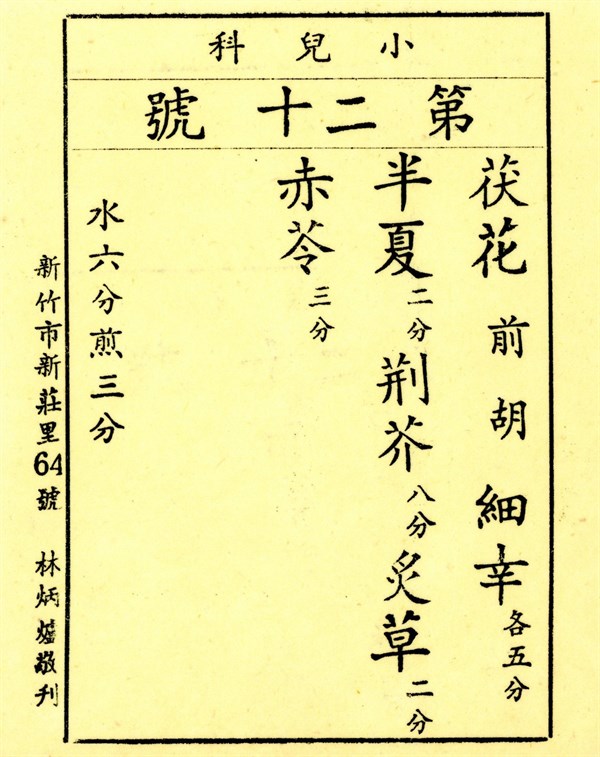 小兒科
第二十號
茯花 前胡 細辛 各五分
半夏 二分 荆芥 八分 炙草 二分
赤苓 三分
水六分煎三分
新竹市新莊里64號 林炳爐敬刊